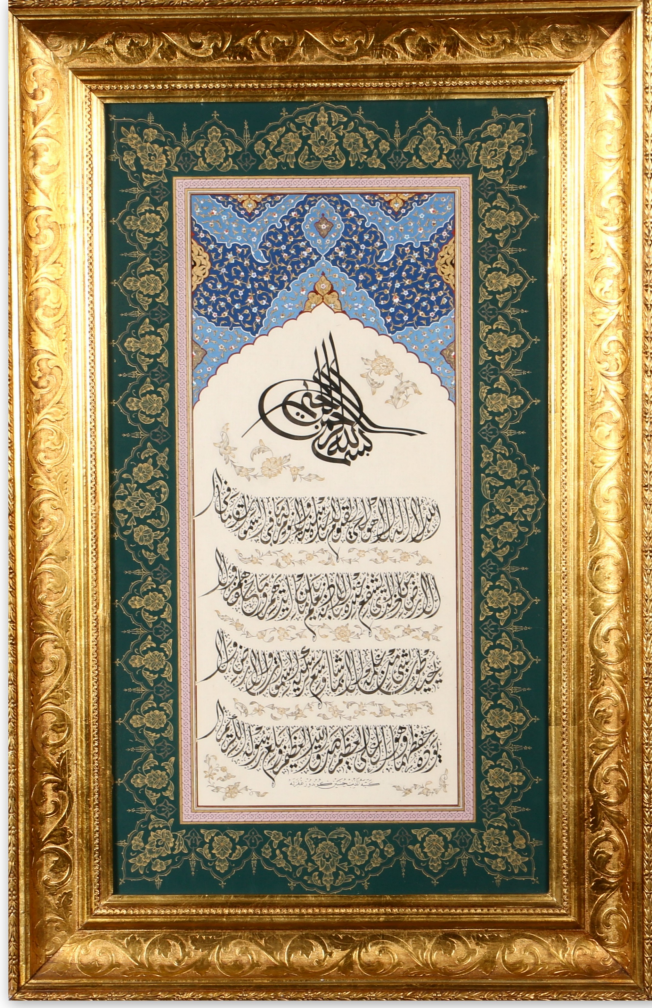 بسم الله الرحمن الرحيم
الله لا إله إلا هو الحي القيوم لا تأخذه سنة ولا نوم له ما في السموات وما في
الأرض من ذا الذي يشفع عنده إلا بإذنه يعلم ما بين أيديهم وما خلفهم ولا
يحيطون بشيء من علمه إلا بما شاء وسع كرسيه السموات والأرض ولا
يؤده حفظهما وهو العلي العظيم صدق الله العظيم
كتبه